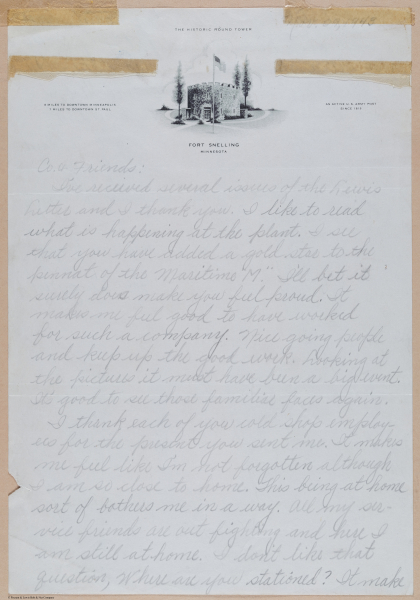 THE HISTORIC ROUND TOWER
6 MILES TO DOWNTOWN MINNEAPOLIS
7 MILES TO DOWNTOWN ST. PAUL
AN ACTIVE U.S. ARMY POST
SINCE 1819
FORT SNELLING
MINNESOTA
Friends:
I've received several issues of the News
Letter and I thank you. I like to read
what is happening at the plant. I see
that you have added a gold star to the
pennat of the Maritime "M." I'll bet it
surely does make you feel proud. It
makes me feel good to have worked
for such a company. Nice going people
and keep up the good work. Looking at
the pictures it must have been a big event.
It's good to see those familiar faces again.
I thank each of you cold shop employ-
ees for the present you sent me. It makes
me feel like I'm not forgotten although
I am so close to home. This being at home
sort of bothers me in a way. All my ser-
vice friends are out fighting and here I
am still at home. I don't like that
question, Where are you stationed? It make